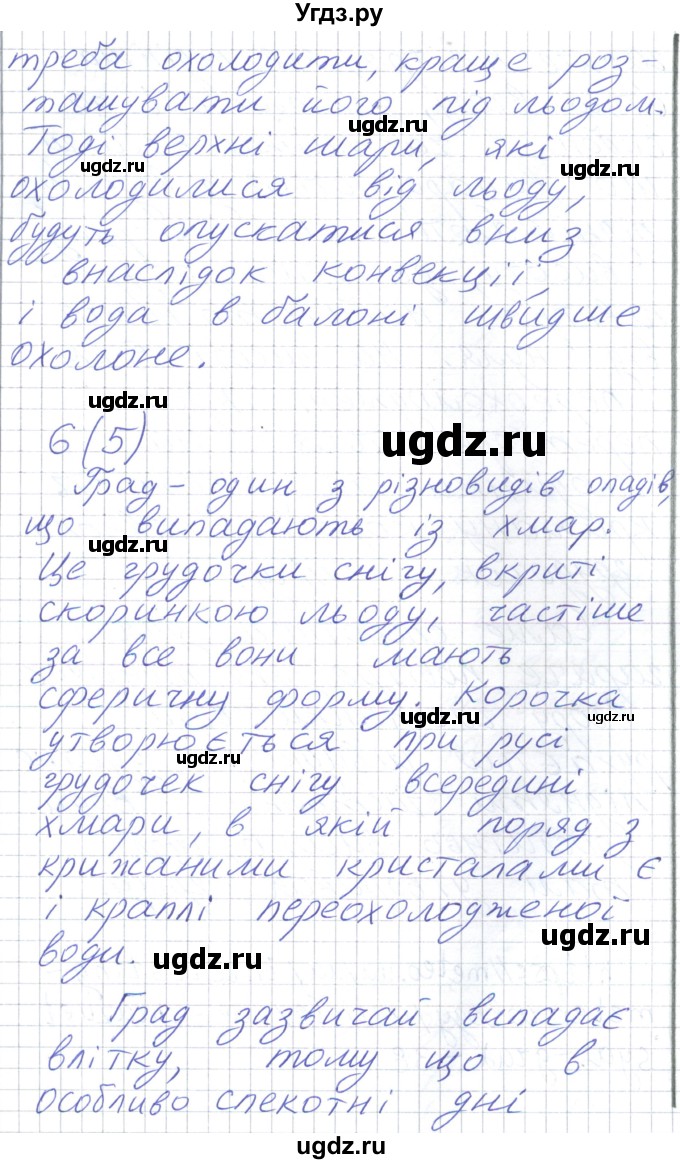 Угдз.ру
треба охолодити, краще роз-
ташувати його під льодом.
ugdz.ru
Тоді верхні шари, які
ugdz.ru
ugdz.ru
охолодилися від льоду,
будуть опускатися вниз
внаслідок конвекції,
і вода в балоні швидше
охолоне.
ugdz.ru
6 (5)
ugdz.ru
Град - один з різновидів опадів,
що випадають із хмар.
ugdz.ru
Це грудочки снігу, вкриті
скоринкою льоду, частіше
за все вони мають
сферичну форму. Корочка
ugdz.ru
ugdz.ru
утворюється при русі
ugdz.ru
грудочек снігу всередині
хмари, в якій поряд з
крижаними кристалами є
і краплі переохолодженої
води.
ugdz.ru
Град зазвичай випадає
влітку, тому що в
особливо спекотні дні
ugdz.ru